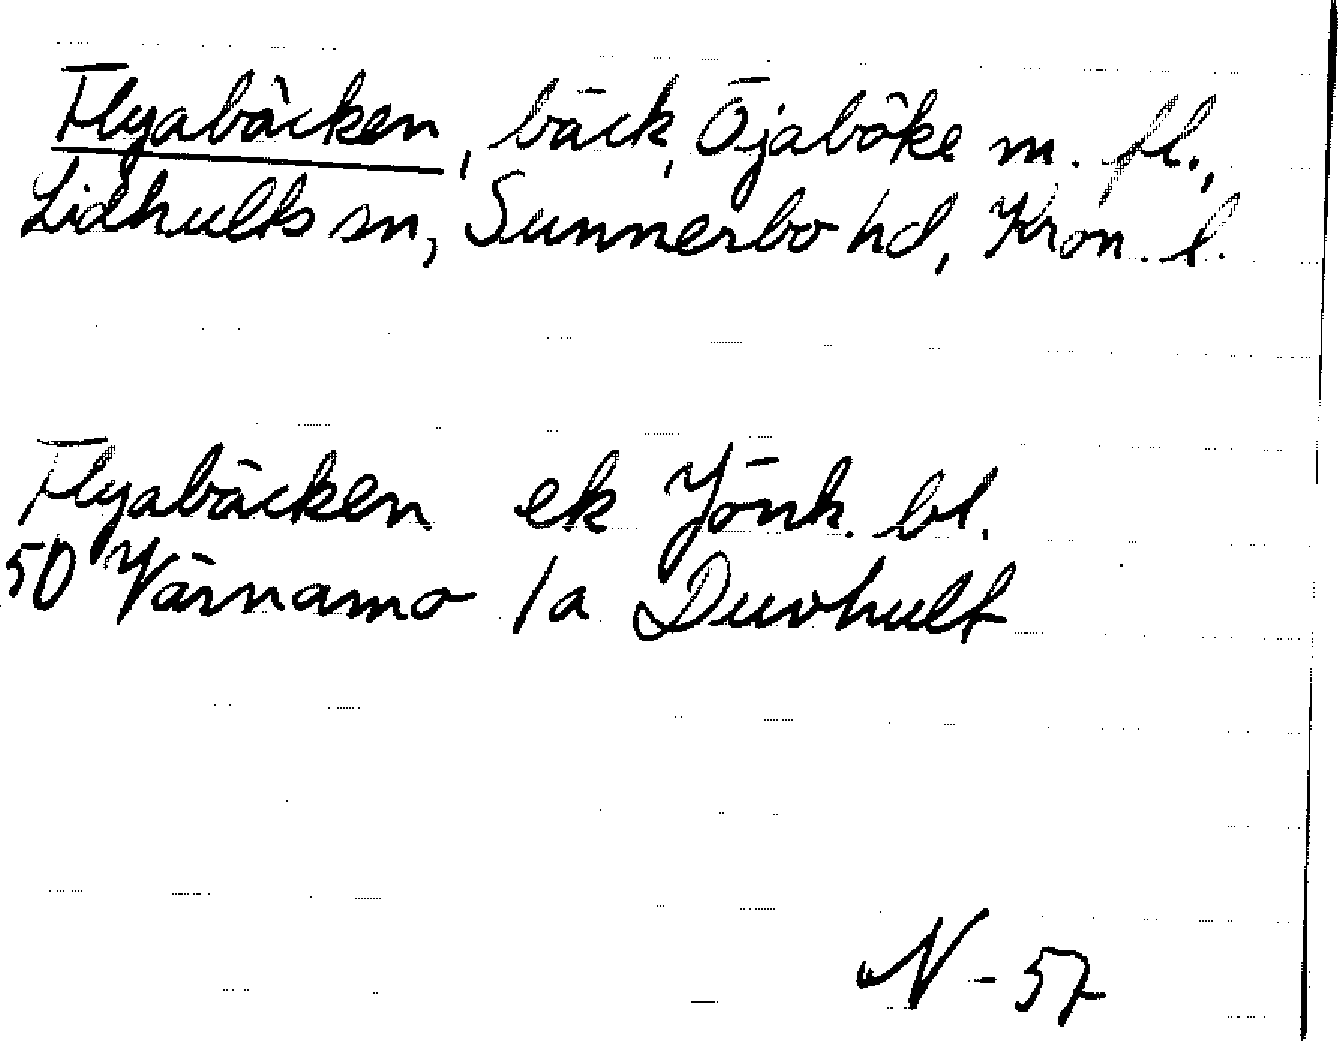 Flyabäcken, bäck, Öjaböke m. fl.,
Lidhults sn, Sunnerbo hd, Kron. l.
Flyabäcken ek Jönk. bl.
50 Värnamo 1a Duvhult
N-57